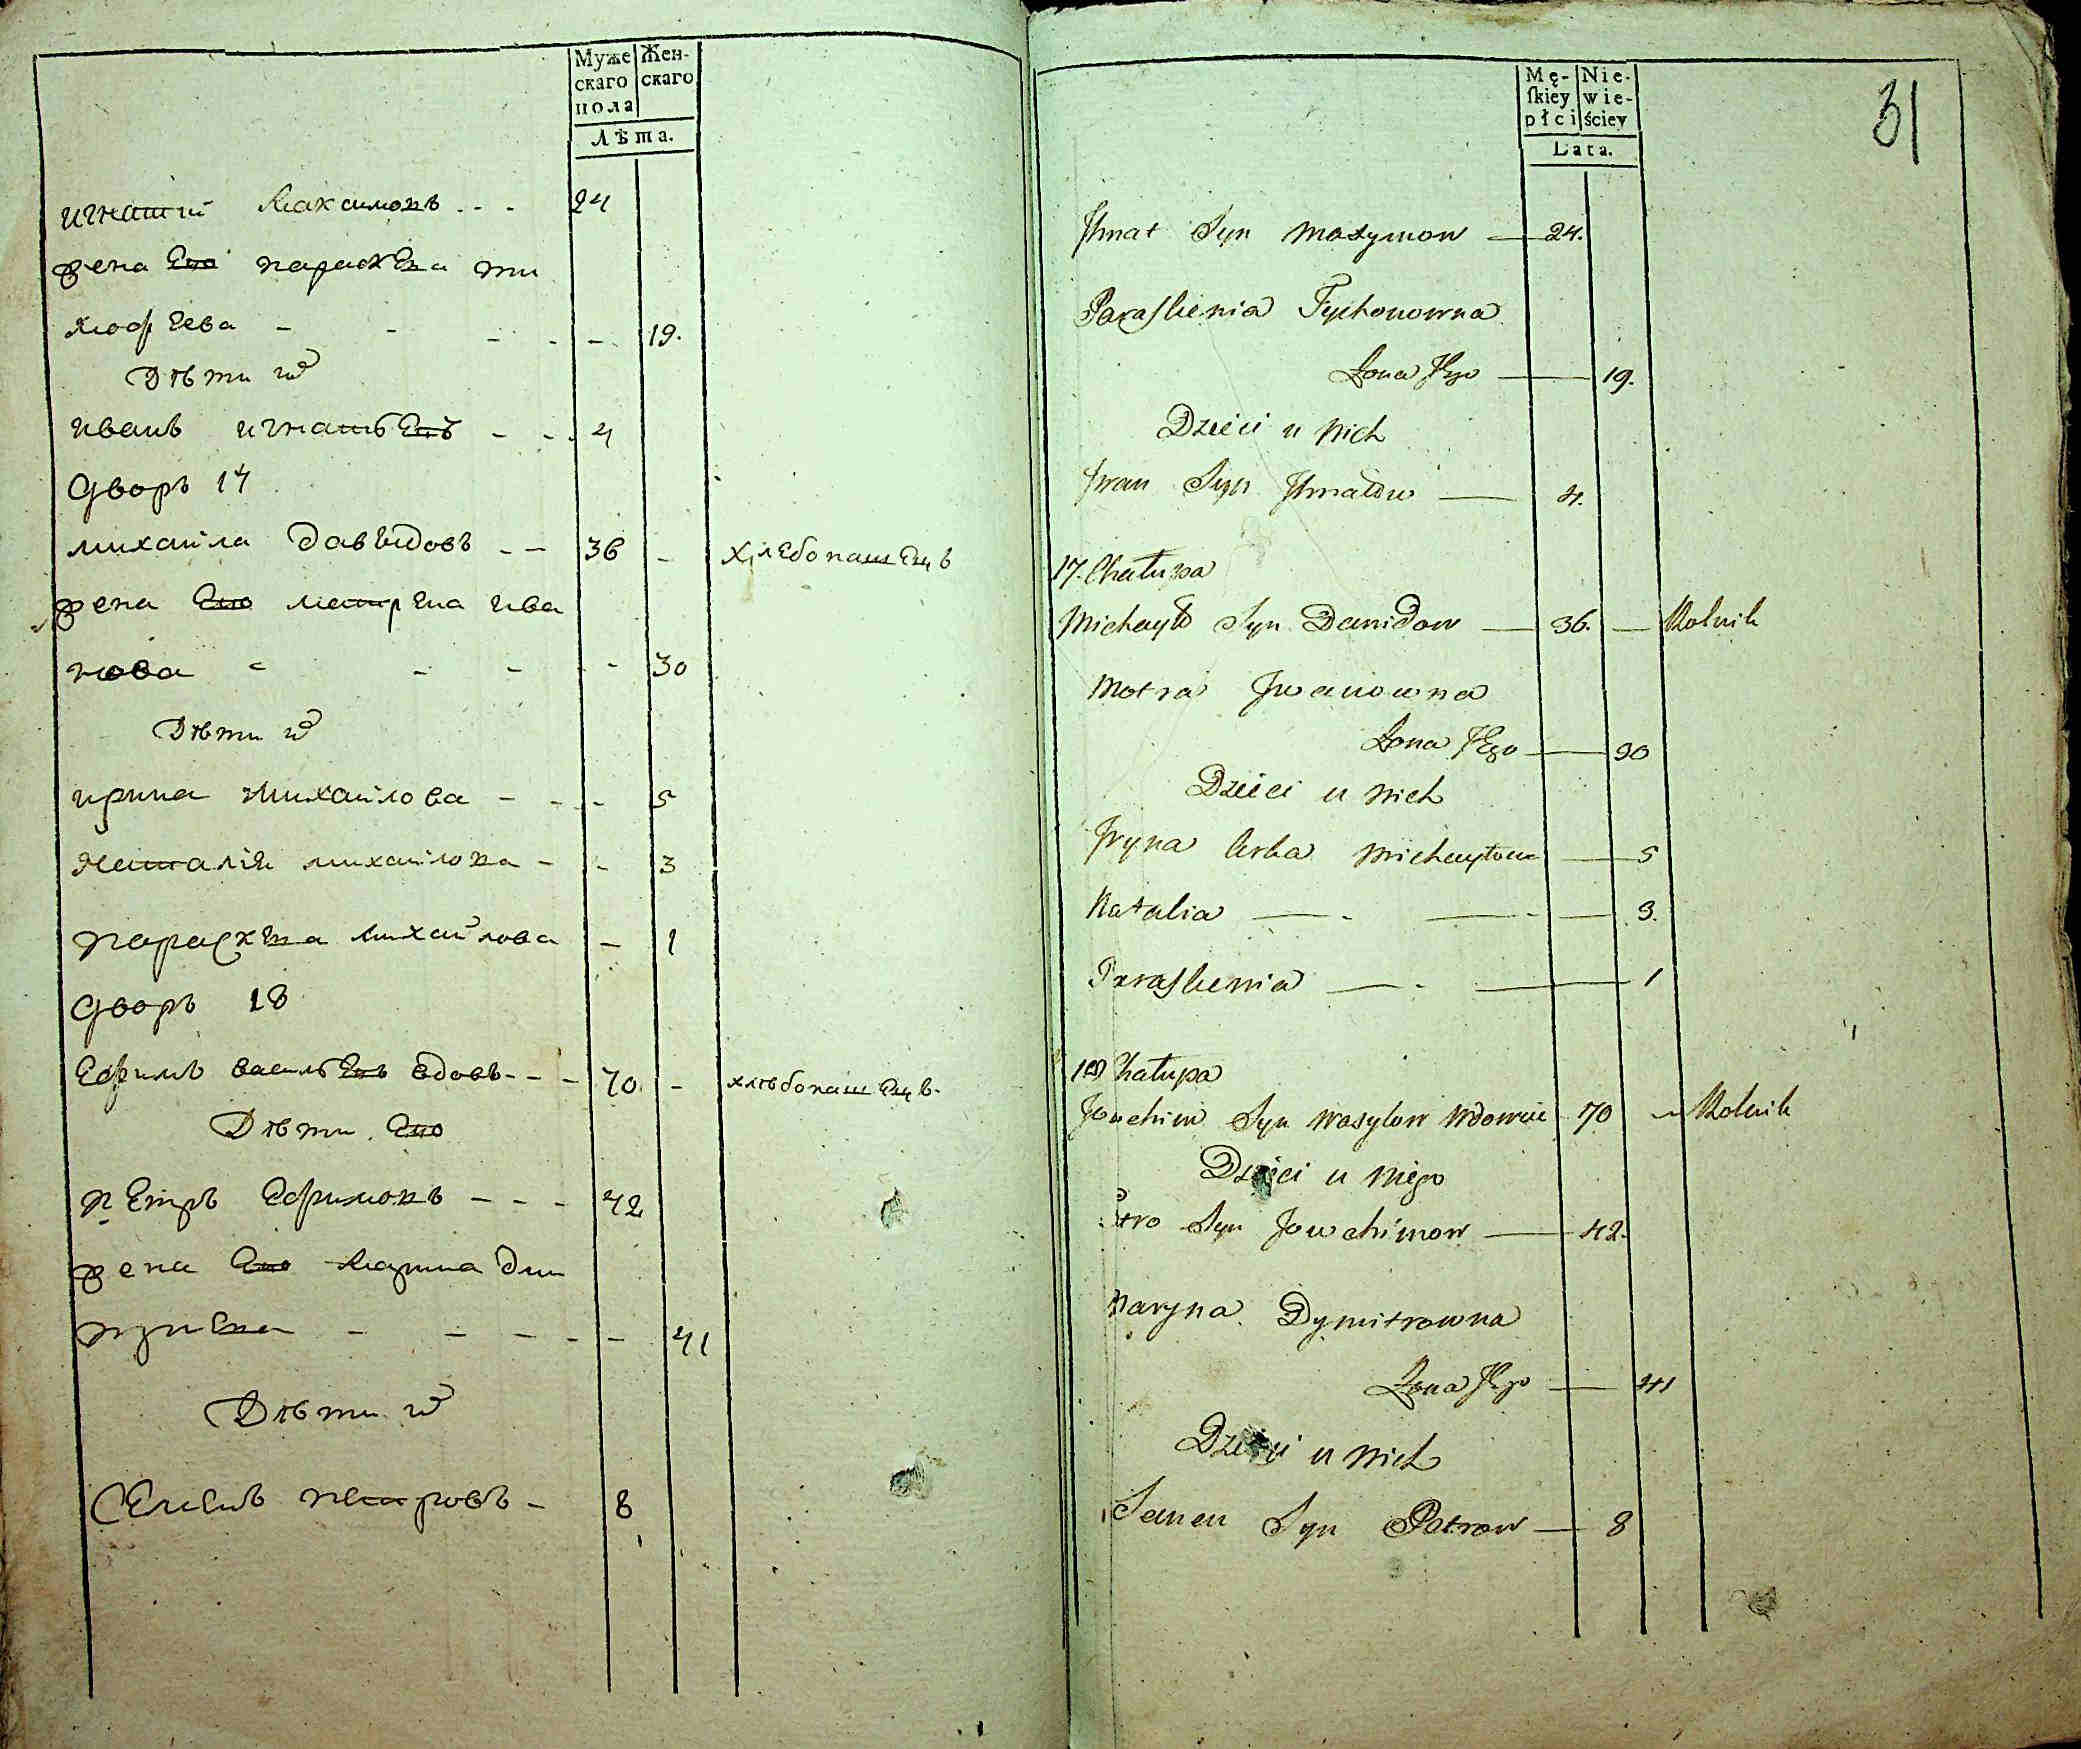 Муже Жен-
скаго скаго
пола
Лѣта.
игнатий Максимовъ - - - 24
жена Его параскева ти
мофеева - - - - - 19.
Дѣти их
иванъ игнатьевъ - - - 4
Дворъ 17
михайла давыдовъ - - 36 - хлебопашецъ
жена Его матрена ива
нова - - - - - 30
Дѣти их
ирина михайлова - - - 5
Наталия михайлова - - 3
параскева михайлова - 1
Дворъ 18
Ефимъ васильевъ вдовъ - - - 70 - хлѣбопашецъ.
Дѣти Его
петръ Ефимовъ - - - 42
жена Его Марина дми
триева - - - - - 41
Дѣти их
Семенъ петровъ - 8
31
Mę- Nie-
ſkiey wie-
płci ściey
Lata.
Ihnat Syn Maxymow — 24.
Paraskewia Tychonowna
Żona Jego — 19.
Dzieci u nich
Jwan Syn Ihnatow — 4.
17. Chałupa
Michayło Syn Dawidow — 36. — Rolnik
Motra Jwanowna
Żona Jego — 30
Dzieci u nich
Jryna Corka Michayłowa — 5
Natalia — - — - — 3.
Paraskewia — - — 1
18 Chałupa
Jowchim Syn Wasylow Wdowiec 70 - Rolnik
Dzieci u niego
Petro Syn Jowchimow — 42.
Maryna Dymitrowna
Żona Jego — 41
Dzieci u nich
Semen Syn Petrow — 8